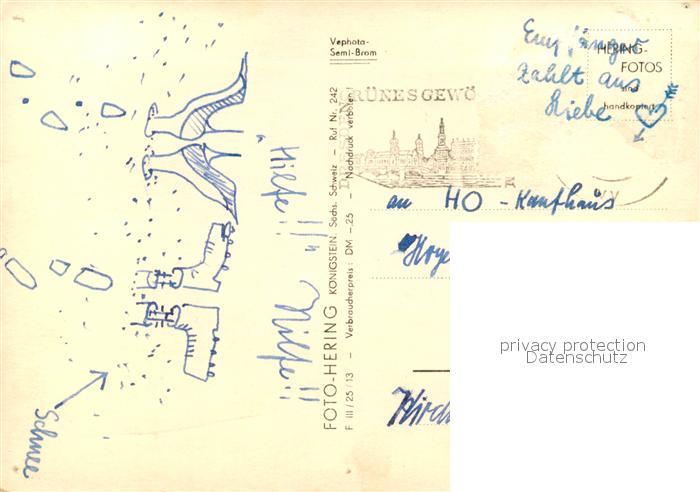 Vephota-
Semi-Brom
Empfänger
zahlt aus
Liebe
HERING-
FOTOS
sind
handkopiert
GRÜNES GEWÖ
DRESDEN
an HO - Kaufhaus
Hoye
"Hilfe!!!"
Hilfe!!
Schnee
FOTO-HERING KÖNIGSTEIN, Sächs. Schweiz – Ruf Nr. 242
F III/25/13 – Verbraucherpreis: DM –.25 – Nachdruck verboten!
privacy protection
Datenschutz